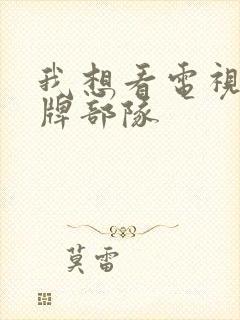 我想看電視
牌部隊
莫雷